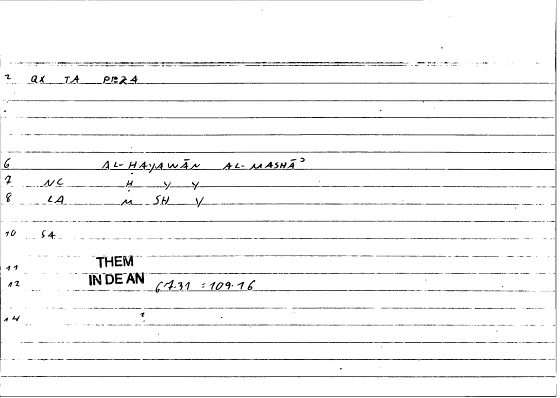 2 QX TA PEZA
6 AL-ḤAYAWĀN AL-MASHĀʾ
7 NC Ḥ Y Y
8 LA M SH Y
10 SA
11 THEM
12 IN DE AN 67.31 = 109.16
14